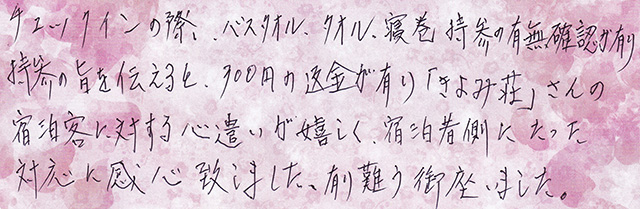 チェックインの際、バスタオル、タオル、寝巻 持参の有無確認が有り
持参の旨を伝えると、300円の返金が有り「きよみ荘」さんの
宿泊客に対する心遣いが嬉しく、宿泊者側にたった
対応に感心致しました、有難う御座いました。